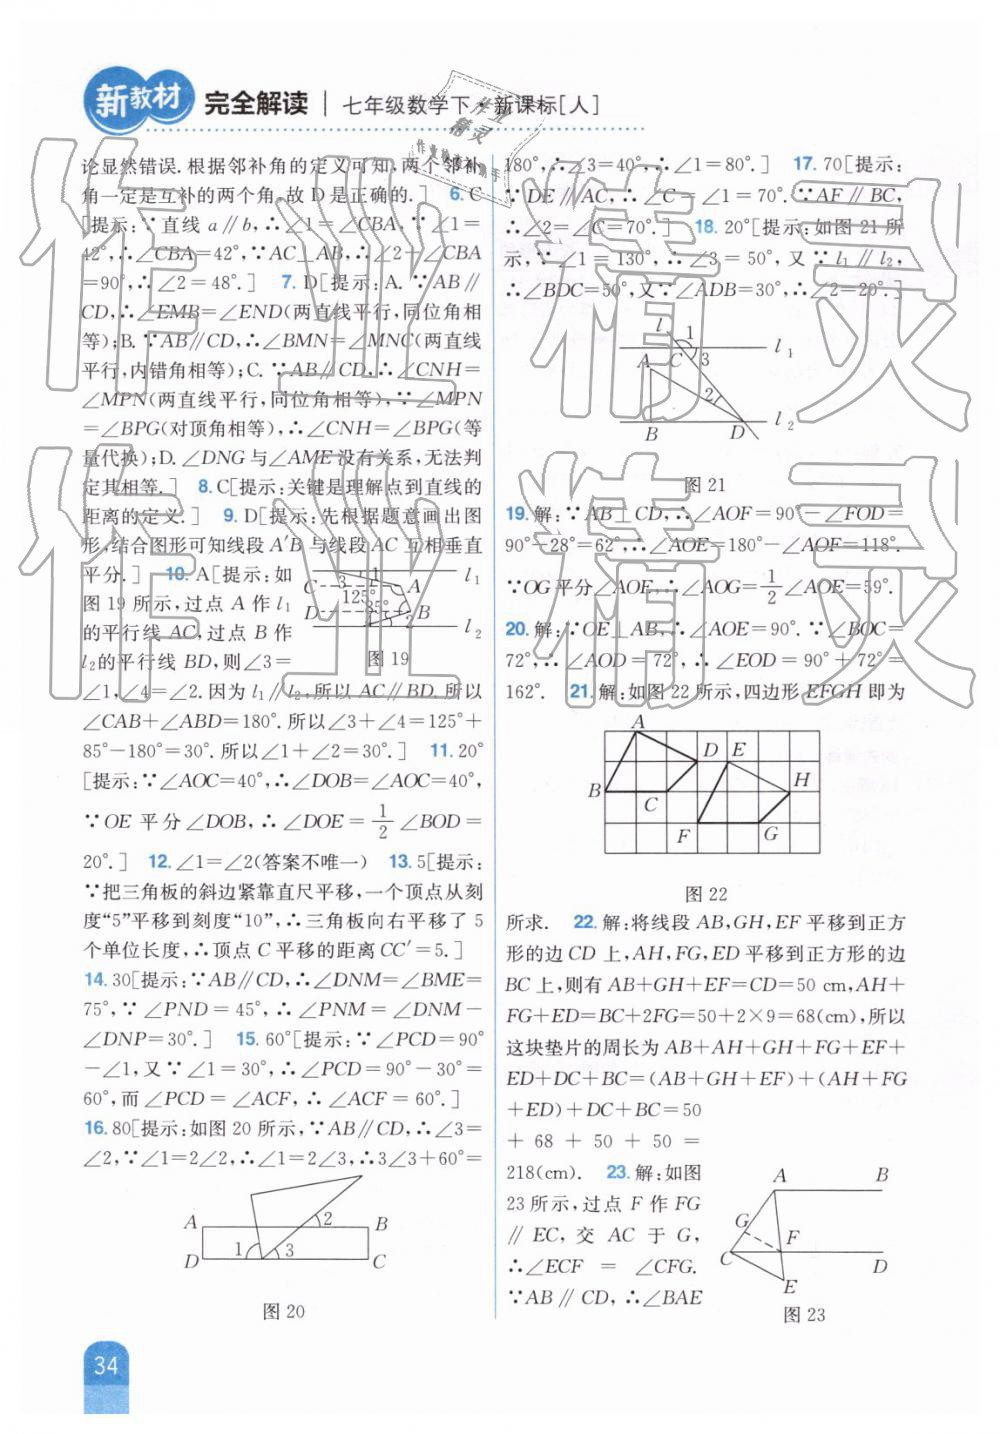 新教材 完全解读 | 七年级数学下·新课标[人]
论显然错误.根据邻补角的定义可知,两个邻补
角一定是互补的两个角,故 D 是正确的.] 6. C
[提示:∵直线 a∥b,∴∠1=∠CBA,∵∠1=
42°,∴∠CBA=42°,∵AC⊥AB,∴∠2+∠CBA
=90°,∴∠2=48°.] 7. D[提示:A. ∵AB∥
CD,∴∠EMB=∠END(两直线平行,同位角相
等);B. ∵AB∥CD,∴∠BMN=∠MNC(两直线
平行,内错角相等);C. ∵AB∥CD,∴∠CNH=
∠MPN(两直线平行,同位角相等),∵∠MPN
=∠BPG(对顶角相等),∴∠CNH=∠BPG(等
量代换);D. ∠DNG与∠AME没有关系,无法判
定其相等.] 8. C[提示:关键是理解点到直线的
距离的定义.] 9. D[提示:先根据题意画出图
形,结合图形可知线段 A′B 与线段 AC 互相垂直
平分.] 10. A[提示:如
图 19 所示,过点 A 作 l₁
的平行线 AC,过点 B 作
l₂的平行线 BD,则∠3=
C 3 1 l₁
125° A
D 85° B
2 l₂
图 19
∠1,∠4=∠2.因为 l₁∥l₂,所以 AC∥BD.所以
∠CAB+∠ABD=180°.所以∠3+∠4=125°+
85°−180°=30°.所以∠1+∠2=30°.] 11. 20°
[提示:∵∠AOC=40°,∴∠DOB=∠AOC=40°,
∵OE 平分∠DOB,∴∠DOE=1/2∠BOD=
20°.] 12. ∠1=∠2(答案不唯一) 13. 5[提示:
∵把三角板的斜边紧靠直尺平移,一个顶点从刻
度“5”平移到刻度“10”,∴三角板向右平移了 5
个单位长度,∴顶点 C 平移的距离 CC′=5.]
14. 30[提示:∵AB∥CD,∴∠DNM=∠BME=
75°,∵∠PND=45°,∴∠PNM=∠DNM−
∠DNP=30°.] 15. 60°[提示:∵∠PCD=90°
−∠1,又∵∠1=30°,∴∠PCD=90°−30°=
60°,而∠PCD=∠ACF,∴∠ACF=60°.]
16. 80[提示:如图 20 所示,∵AB∥CD,∴∠3=
∠2,∵∠1=2∠2,∴∠1=2∠3,∴3∠3+60°=
A 2 B
D 1 3 C
图 20
180°,∴∠3=40°,∴∠1=80°.] 17. 70[提示:
∵DE∥AC,∴∠C=∠1=70°.∵AF∥BC,
∴∠2=∠C=70°.] 18. 20°[提示:如图 21 所
示,∵∠1=130°,∴∠3=50°,又∵l₁∥l₂,
∴∠BDC=50°,又∵∠ADB=30°,∴∠2=20°.]
l 1 l₁
A C 3
2
B D l₂
图 21
19. 解:∵AB⊥CD,∴∠AOF=90°−∠FOD=
90°−28°=62°,∴∠AOE=180°−∠AOF=118°.
∵OG平分∠AOE,∴∠AOG=1/2∠AOE=59°.
20. 解:∵OE⊥AB,∴∠AOE=90°.∵∠BOC=
72°,∴∠AOD=72°,∴∠EOD=90°+72°=
162°. 21. 解:如图 22 所示,四边形 EFGH 即为
A
D E
B C H
F G
图 22
所求. 22. 解:将线段 AB,GH,EF 平移到正方
形的边 CD 上,AH,FG,ED 平移到正方形的边
BC 上,则有 AB+GH+EF=CD=50 cm,AH+
FG+ED=BC+2FG=50+2×9=68(cm),所以
这块垫片的周长为 AB+AH+GH+FG+EF+
ED+DC+BC=(AB+GH+EF)+(AH+FG
+ED)+DC+BC=50
+68+50+50=
218(cm). 23. 解:如图
23 所示,过点 F 作 FG
∥EC,交 AC 于 G,
∴∠ECF=∠CFG.
∵AB∥CD,∴∠BAE
A B
G
F
C D
E
图 23
34
作业精灵
作业精灵
作业
精灵